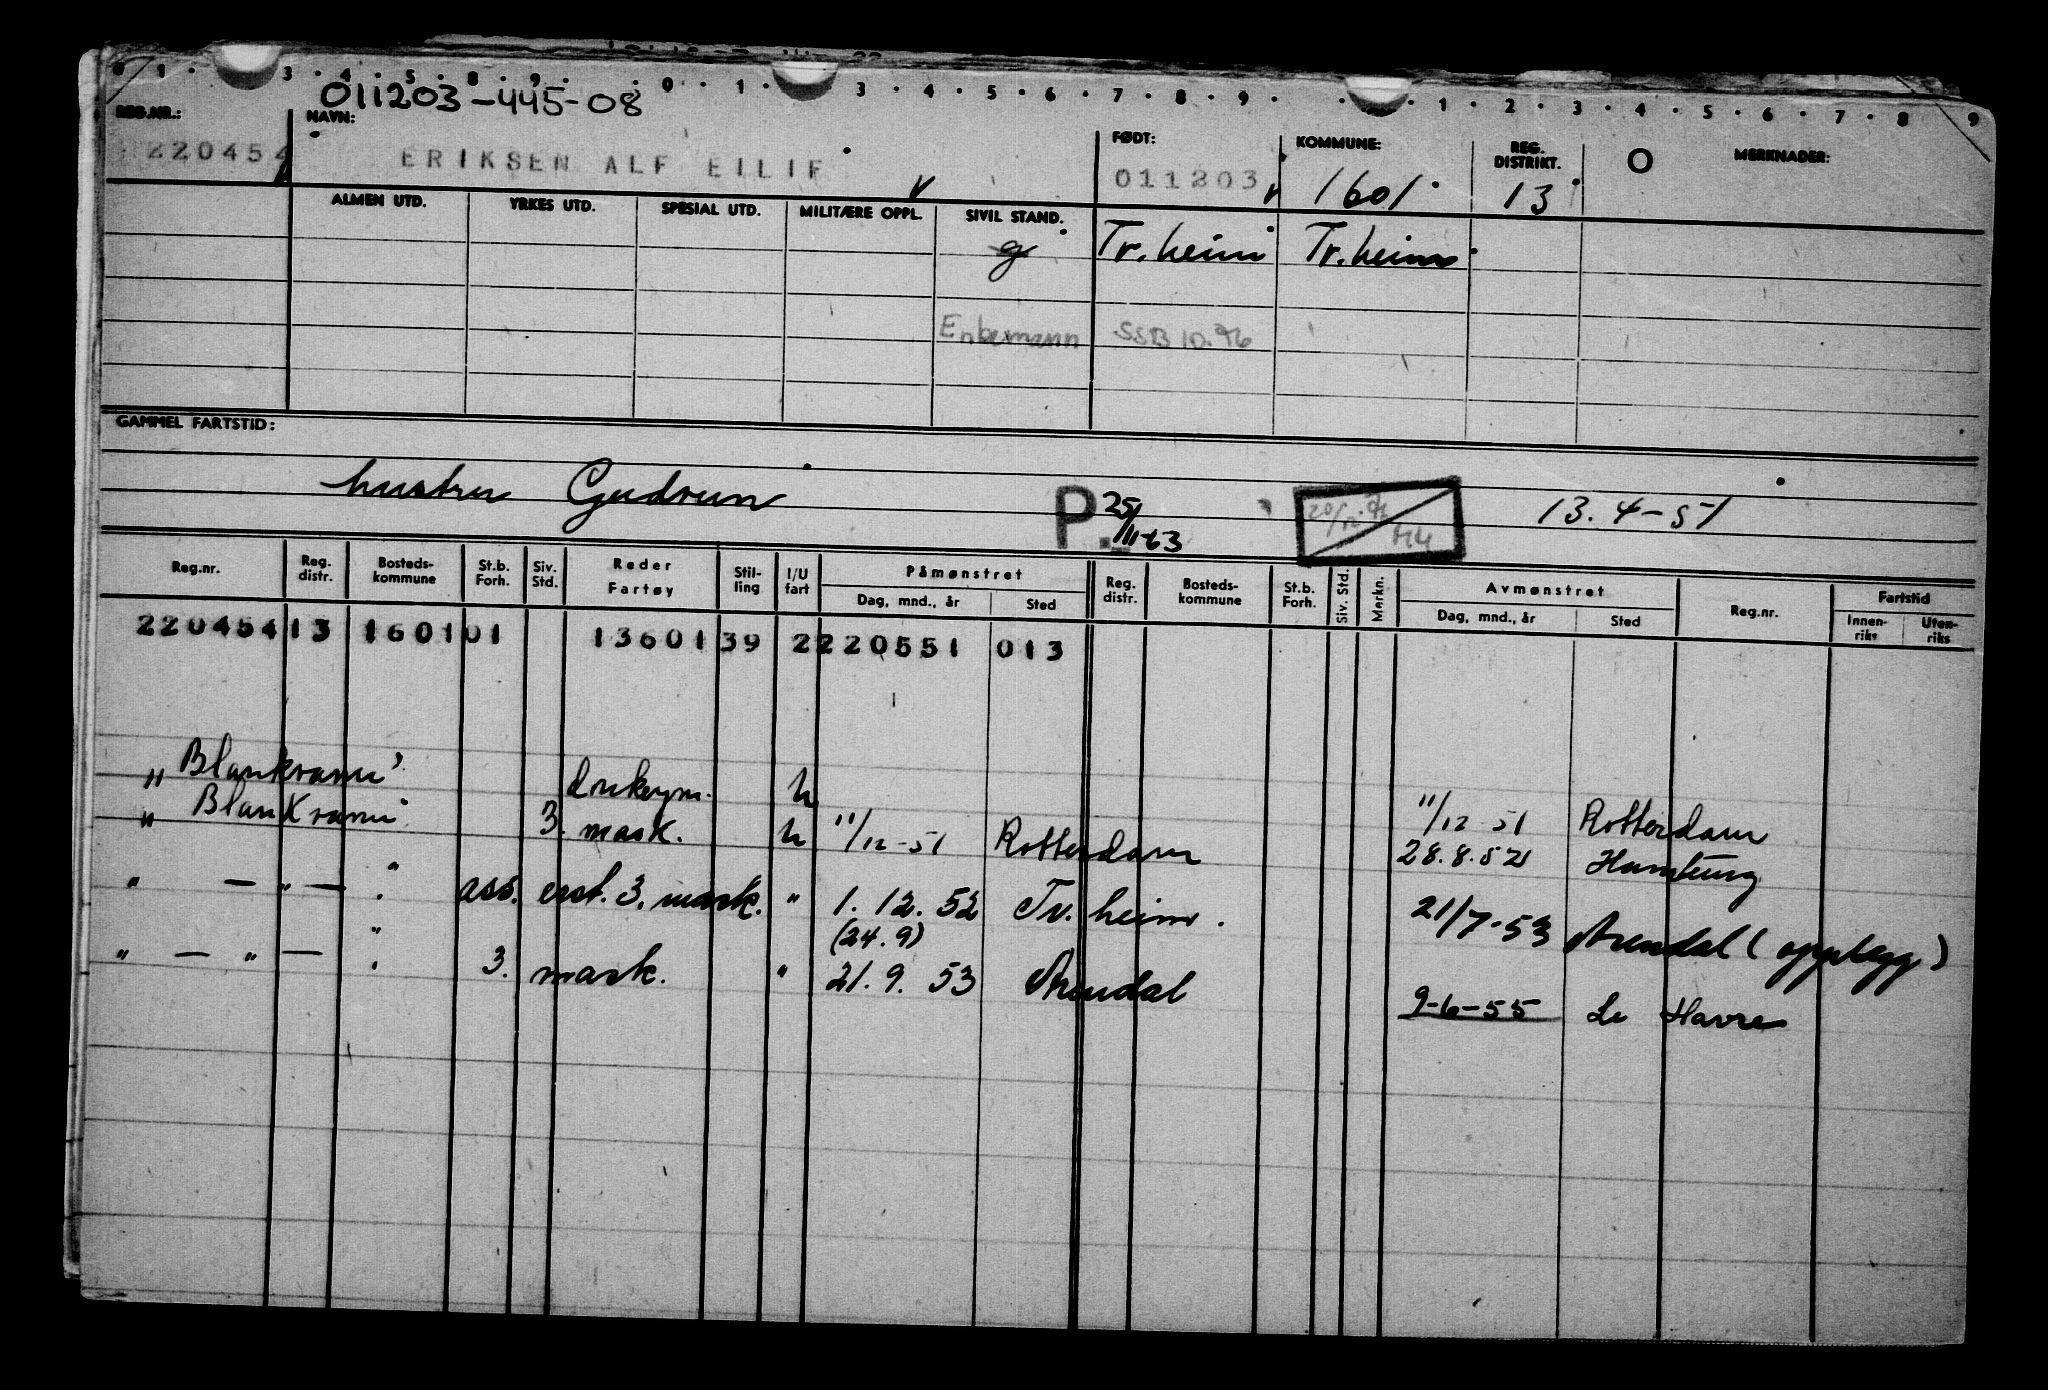 0 1 . 3 . 4 . 5 . 8 . 9 . . 0 . 1 . 3 . 4 . 5 . 6 . 7 . 8 . 9 . . 1 . 2 . 3 . 4 . 5 . 6 . 7 . 8 9
011203-445-08
REG.NR.: NAVN: FØDT: KOMMUNE: REG. DISTRIKT. O MERKNADER:
220454 ERIKSEN ALF EILIF 011203 1601 13
ALMEN UTD. YRKES UTD. SPESIAL UTD. MILITÆRE OPPL. SIVIL STAND.
g Tr.heim Tr.heim
Enkemann SSB 10.96
GAMMEL FARTSTID:
hustru Gudrun P. 25/11-63 13.4-51
Reg.nr. Reg. distr. Bosteds-kommune St.b. Forh. Siv. Std. Reder Fartøy Stil-ling I/U fart Påmønstret Dag, mnd., år Sted Reg. distr. Bosteds-kommune St.b. Forh. Siv. Std. Merkn. Avmønstret Dag, mnd., år Sted Reg.nr. Fartstid Innen-riks Uten-riks
220454 13 1601 01 13601 39 2 220551 013
" Blankvann" u 11/12-51 Rotterdam
" Blankvann" 3. mask. u 11/12-51 Rotterdam 28.8.52 Hamburg
" — " — " ass. erst. 3. mask. " 1.12.52 Tr.heim. 21/7-53 Arendal (opplegg)
(24.9)
" — " — " 3. mask. " 21.9.53 Arendal 9-6-55 Le Havre